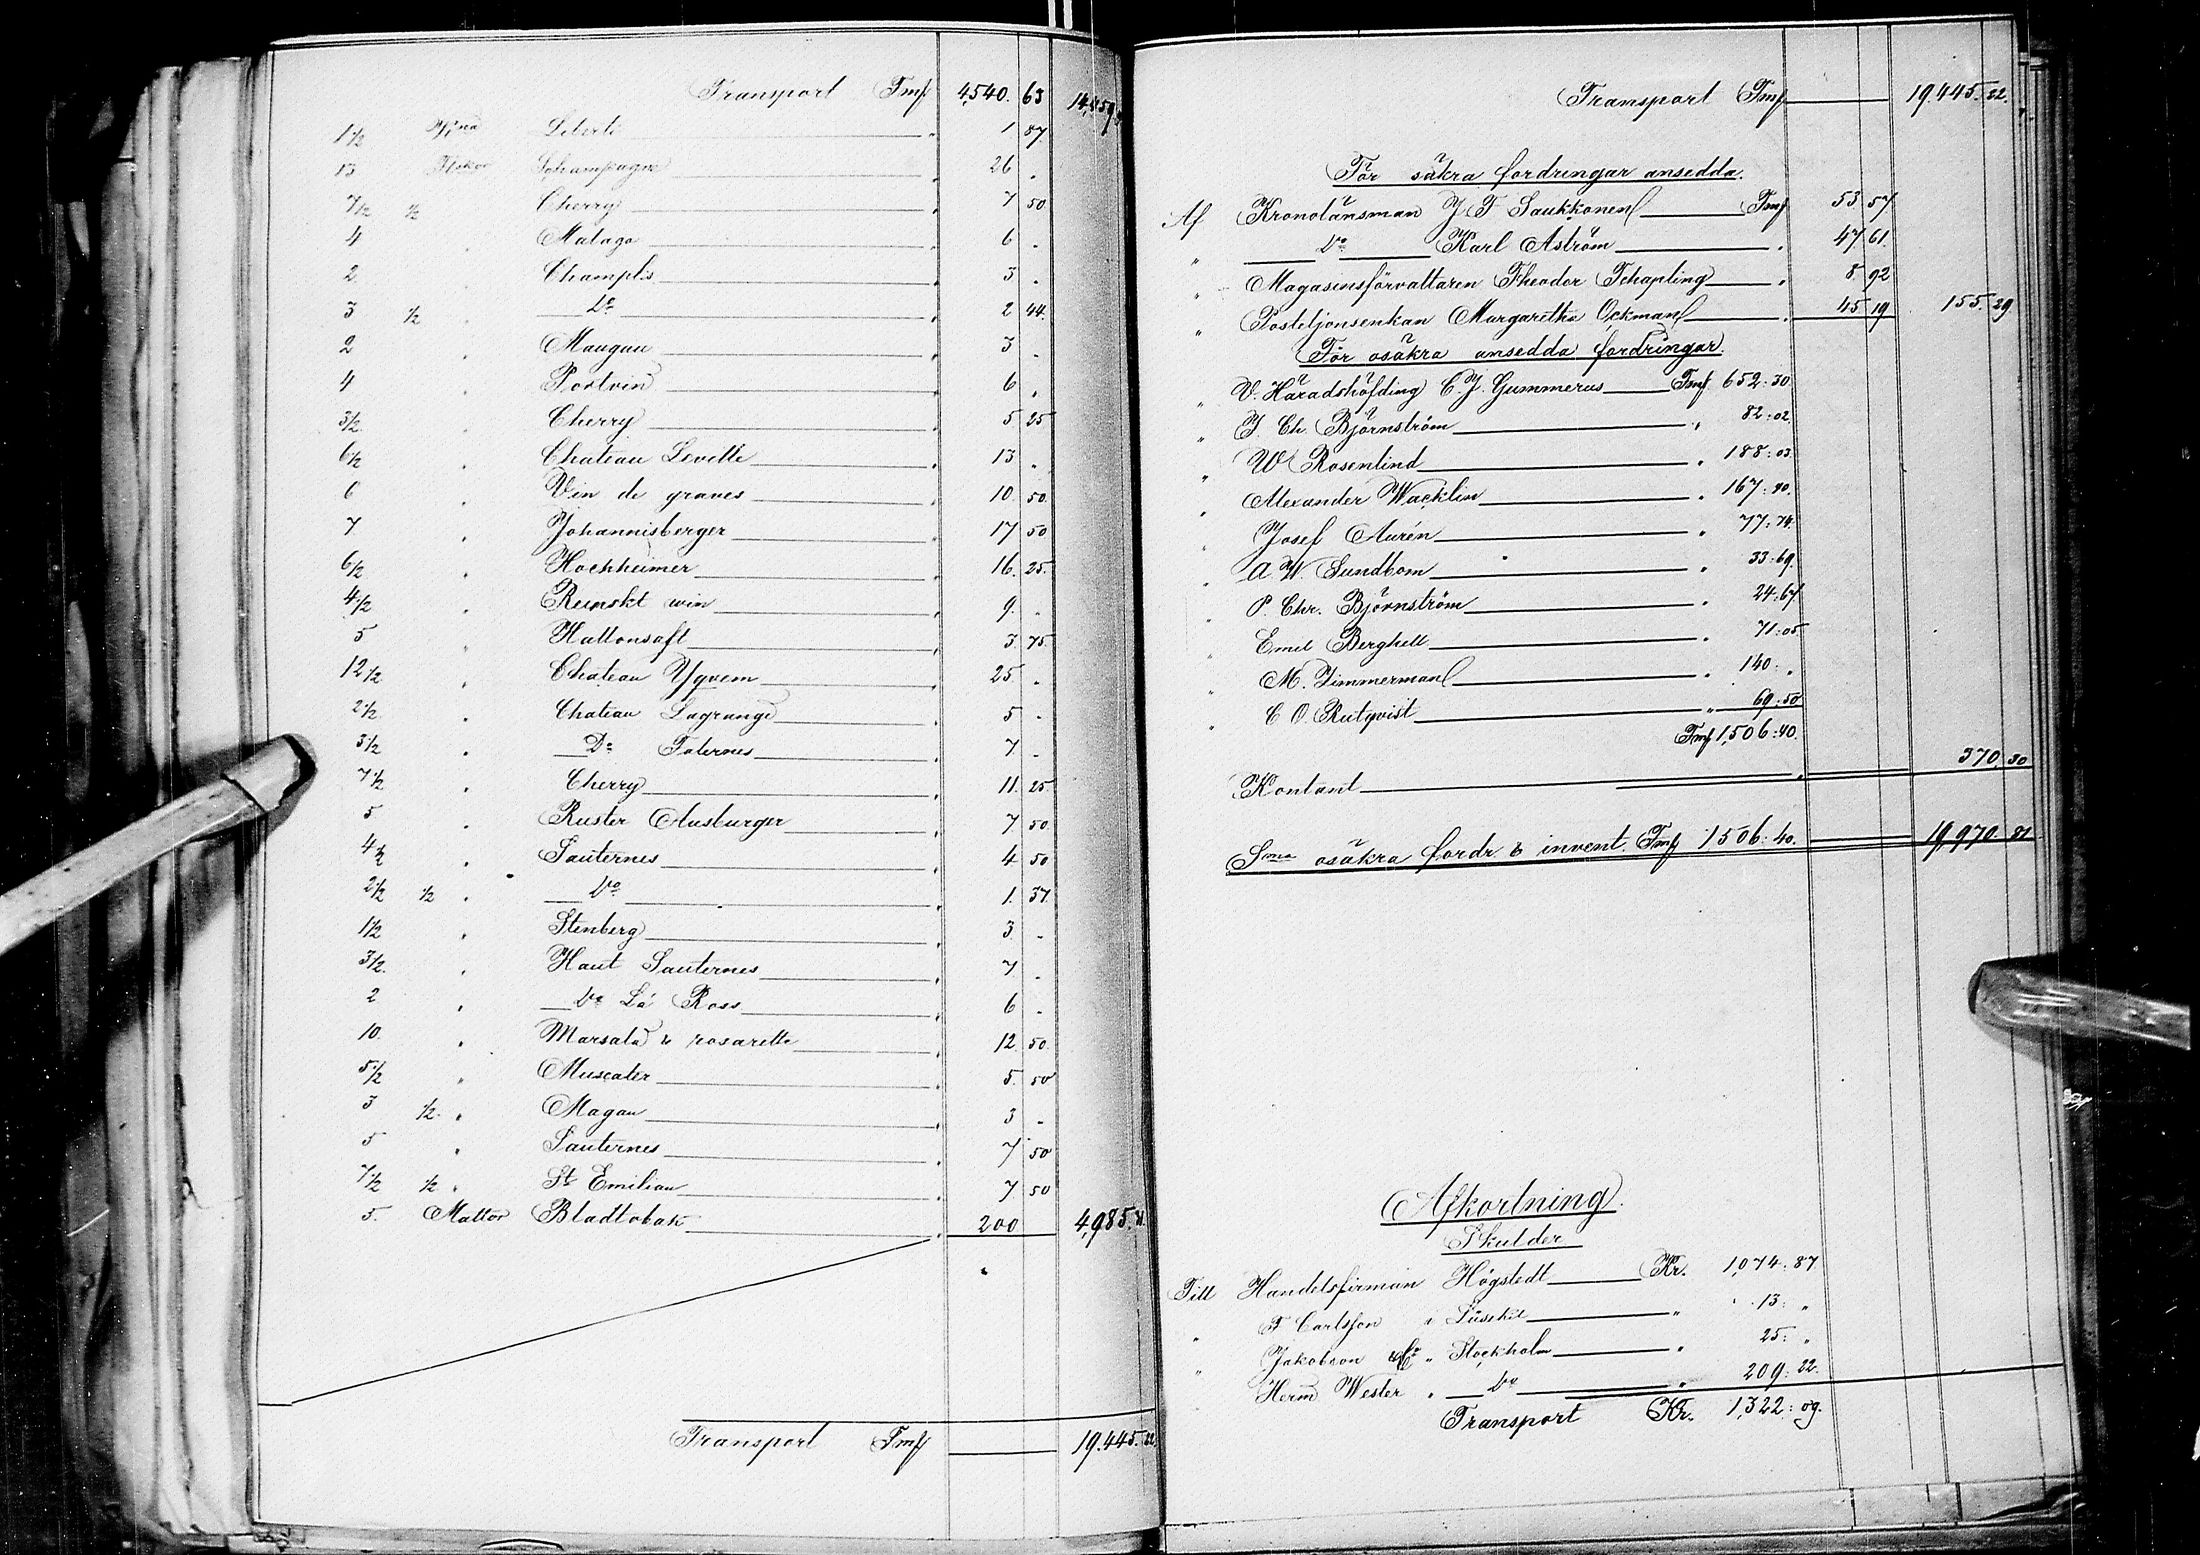 Transport Fmk 4,540. 63 14,459.
1 1/2 Leberti 1 87.
13 Flskor Schampagne 26 "
7 1/2 1/2 Cherry 7 50.
4 " Malaga 6 "
2 " Champlis 3 "
3 1/2 " Do 2 44.
2 " Maugau 3 "
4 " Portvin 6 "
3 1/2 " Cherry 5 25
6 1/2 " Chateau Levette 13 "
6 " Vin de graves 10. 50.
7 " Johannisberger 17 50
6 1/2 " Hochheimer 16. 25.
4 1/2 " Renskt win 9. "
5 " Hallonsaft 3. 75.
12 1/2 " Chateau Yqvem 25 "
2 1/2 " Chateau Lagrange 5 "
3 1/2 " Do Foternes 7 "
7 1/2 " Cherry 11. 25
5 " Ruster Ausburger 7 50.
4 1/2 " Sauternes 4 50
2 1/2 1/2 " Do 1. 37.
1 1/2 " Stenberg 3 "
3 1/2 " Haut Sauternes 7 "
2 " Do Lá Ross 6 "
10. " Marsala & rosarette 12. 50.
5 1/2 " Muscater 5. 50
3 1/2 " Magau 3 "
5 " Sauternes 7 50
7 1/2 1/2 " St Emilian 7 50
5. Mattor Bladtobak 200 4,985. 81.
Transport Fmk 19.445. 22
Transport Fmk 19.445. 22.
För säkra fordringar ansedda.
Af Kronolänsman J F Saukkonen Fmk 53 57
" Do Karl Aström " 47 61.
" Magasinsförvaltaren Theodor Tchapling " 8 92
" Posteljonsenkan Margaretha Ockman " 45 19 155. 29
För osäkra ansedda fordringar.
" V. Häradshöfding C. J. Gummerus Fmk 652: 30
" J. Ch. Björnström " 82: 02.
" W Rosenlind " 188: 03.
" Alexander Wacklin " 167: 40.
" Josef Aurén " 77: 74.
" A. W. Sundbom " 33: 69.
" P. Chr. Björnström " 24: 67.
" Emil Berghell " 71: 05
" M. Zimmerman " 140: "
" C O. Rutqvist " 69: 50
Fmk 1,506: 40.
Kontant " 370. 30
Sma osäkra fordr. & invent. Fmk 1506: 40. 19,970. 81
Afkortning.
Skulder
Till Handelsfirman Högstedt Kr. 1,074: 87
" F Carlsson i Lüsekil " 13: "
" Jakobson & Co " Stockholm " 25: "
" Herm Wester " Do " 209: 22.
Transport Kr. 1,322: 09.